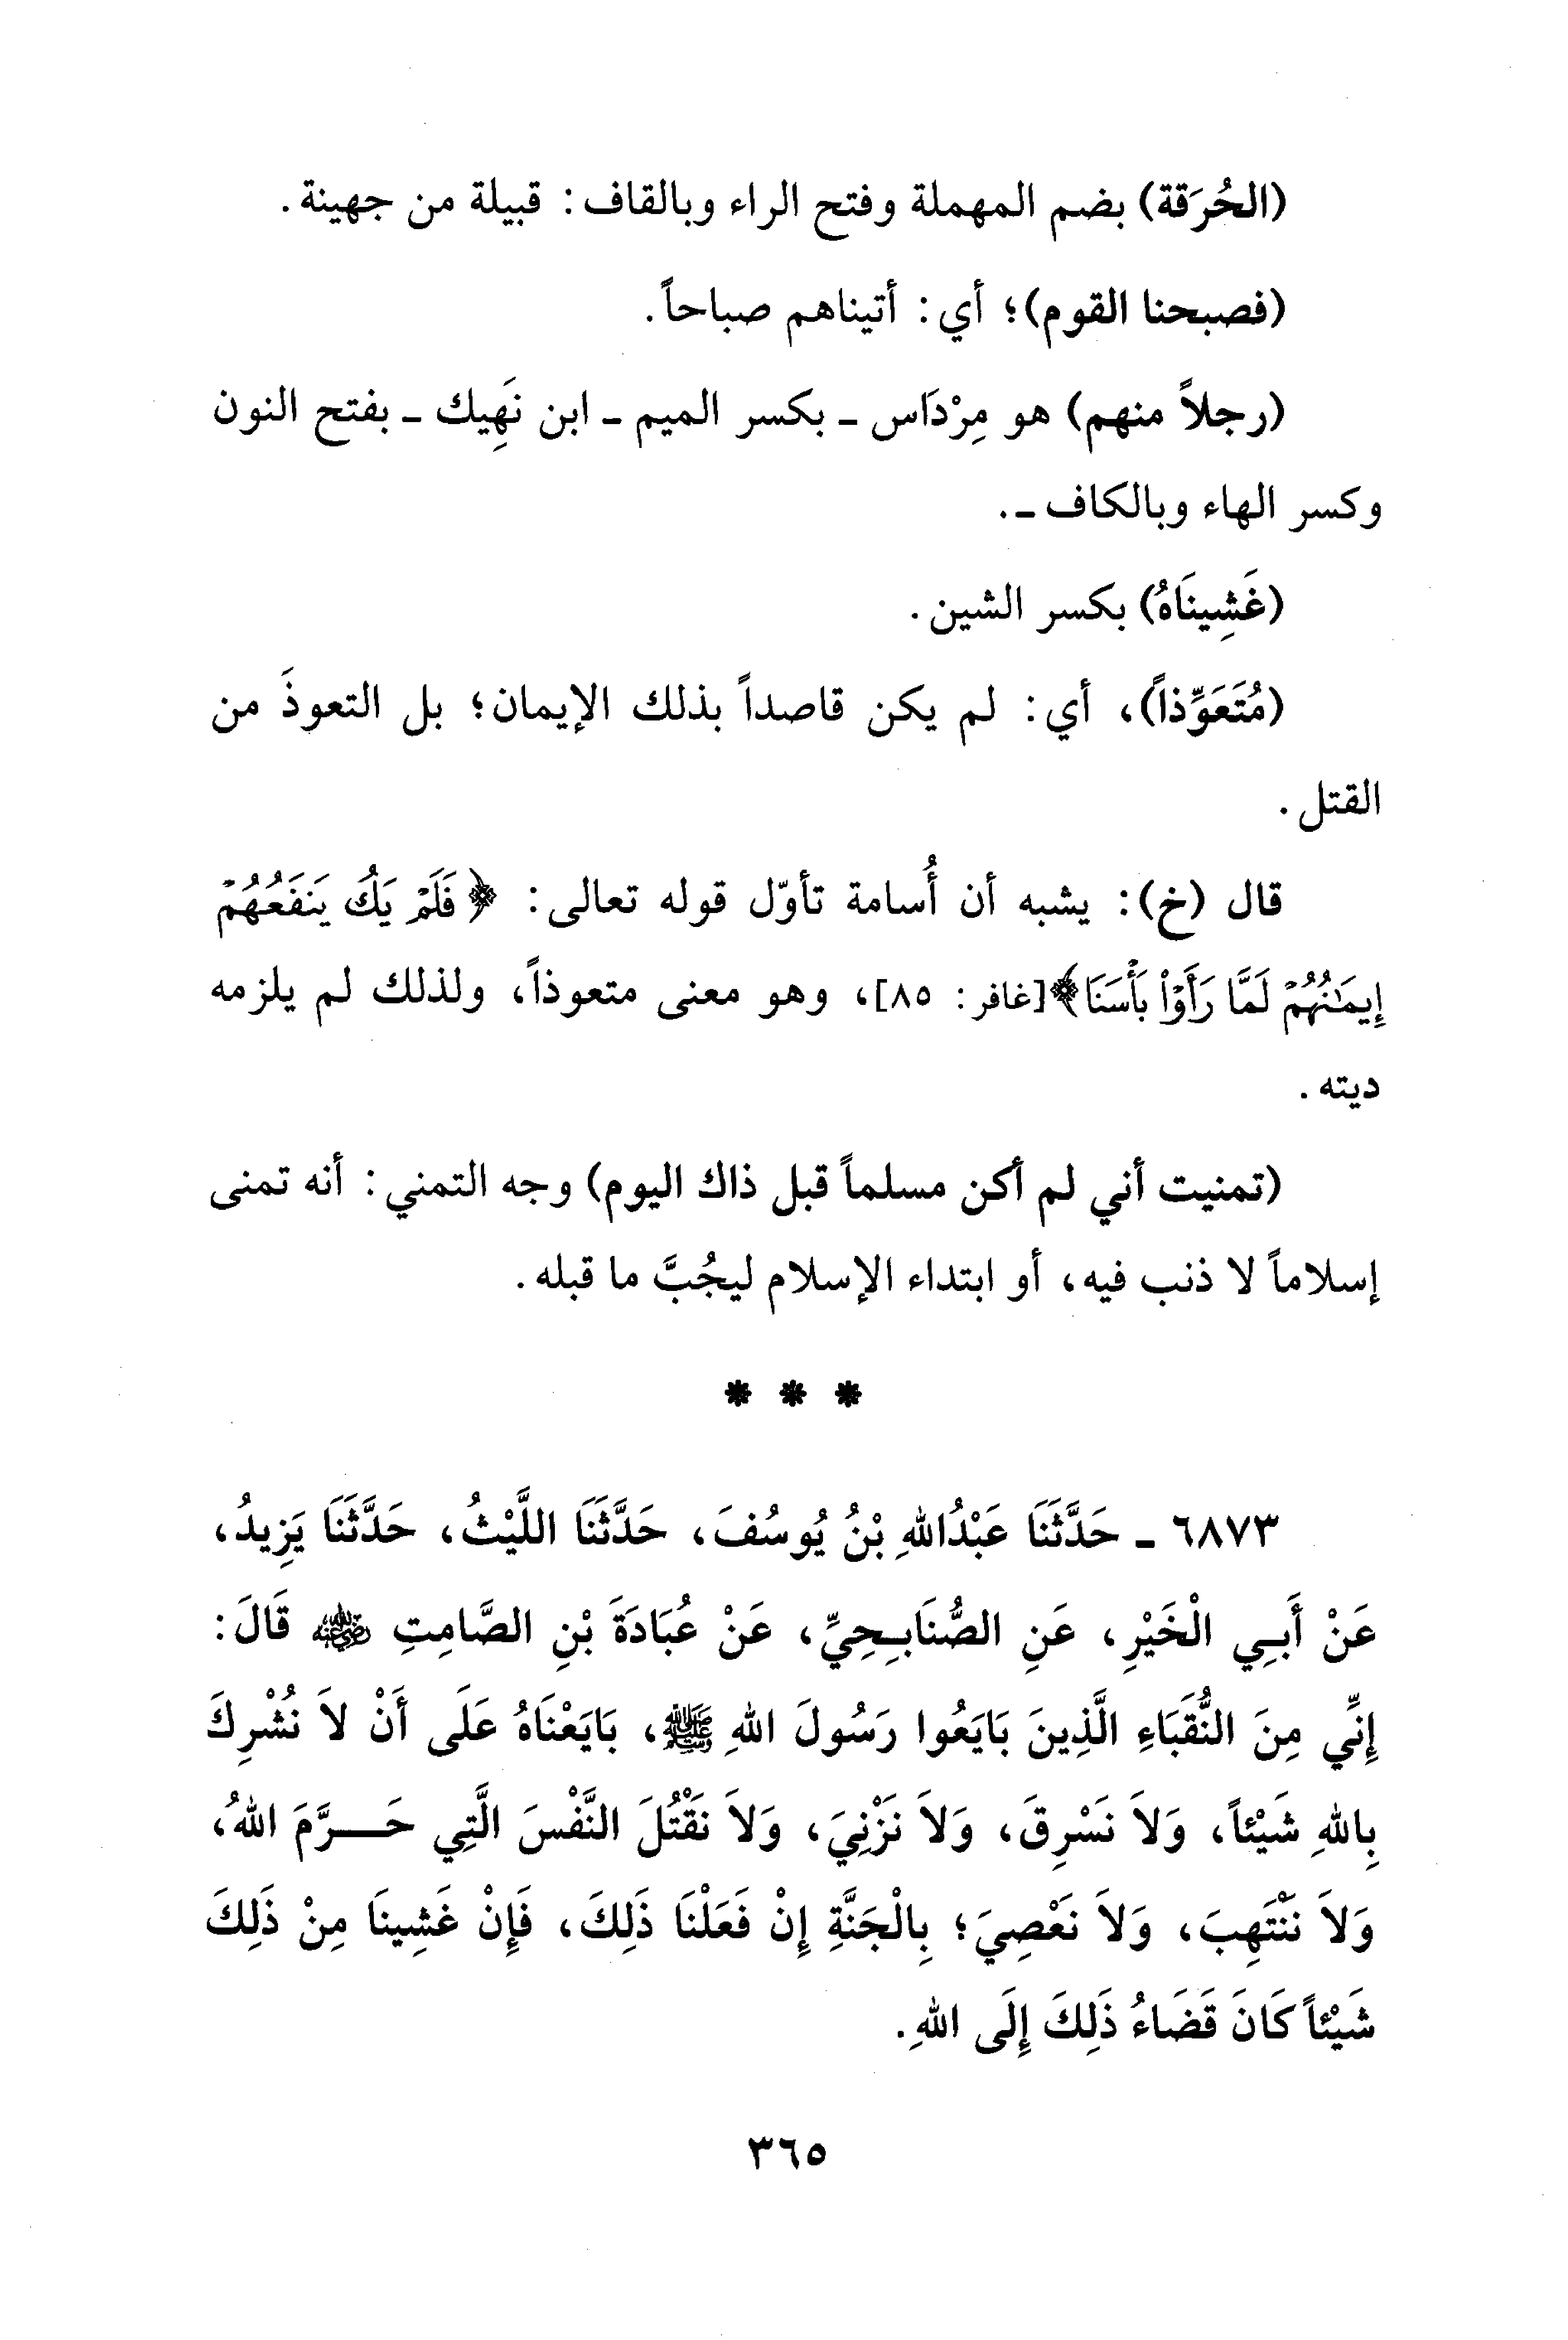 (الحُرَقة) بضم المهملة وفتح الراء وبالقاف: قبيلة من جهينة.
(فصبحنا القوم)؛ أي: أتيناهم صباحاً.
(رجلاً منهم) هو مِرْدَاس ـ بكسر الميم ـ ابن نَهِيك ـ بفتح النون
وكسر الهاء وبالكاف ـ.
(غَشِينَاهُ) بكسر الشين.
(مُتَعَوِّذاً)، أي: لم يكن قاصداً بذلك الإيمان؛ بل التعوذَ من
القتل.
قال (خ): يشبه أن أُسامة تأوّل قوله تعالى: ﴿فَلَمْ يَكُ يَنفَعُهُمْ
إِيمَٰنُهُمْ لَمَّا رَأَوْا۟ بَأْسَنَا﴾[غافر: ٨٥]، وهو معنى متعوذاً، ولذلك لم يلزمه
ديته.
(تمنيت أني لم أكن مسلماً قبل ذاك اليوم) وجه التمني: أنه تمنى
إسلاماً لا ذنب فيه، أو ابتداء الإسلام ليجُبَّ ما قبله.
* * *
٦٨٧٣ ـ حَدَّثَنَا عَبْدُاللهِ بْنُ يُوسُفَ، حَدَّثَنَا اللَّيْثُ، حَدَّثَنَا يَزِيدُ،
عَنْ أَبِي الْخَيْرِ، عَنِ الصُّنَابِحِيِّ، عَنْ عُبَادَةَ بْنِ الصَّامِتِ رضي الله عنه قَالَ:
إِنِّي مِنَ النُّقَبَاءِ الَّذِينَ بَايَعُوا رَسُولَ اللهِ ﷺ، بَايَعْنَاهُ عَلَى أَنْ لاَ نُشْرِكَ
بِاللهِ شَيْئاً، وَلاَ نَسْرِقَ، وَلاَ نَزْنِيَ، وَلاَ نَقْتُلَ النَّفْسَ الَّتِي حَـــرَّمَ اللهُ،
وَلاَ نَنْتَهِبَ، وَلاَ نَعْصِيَ؛ بِالْجَنَّةِ إِنْ فَعَلْنَا ذَلِكَ، فَإِنْ غَشِينَا مِنْ ذَلِكَ
شَيْئاً كَانَ قَضَاءُ ذَلِكَ إِلَى اللهِ.
٣٦٥